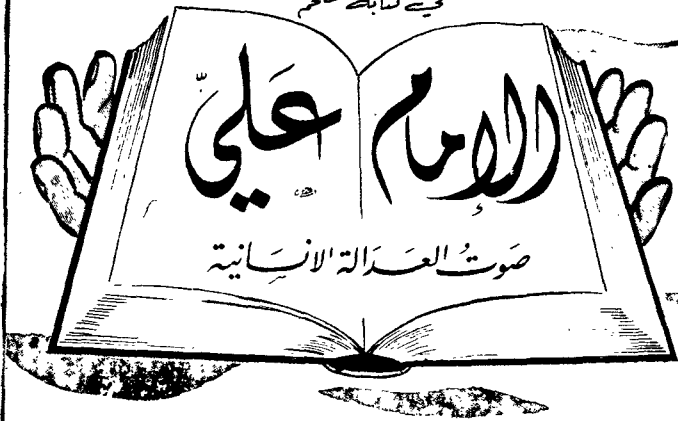 في كتابه
الإمام عليّ
صَوتُ العَدَالة الانسَانية